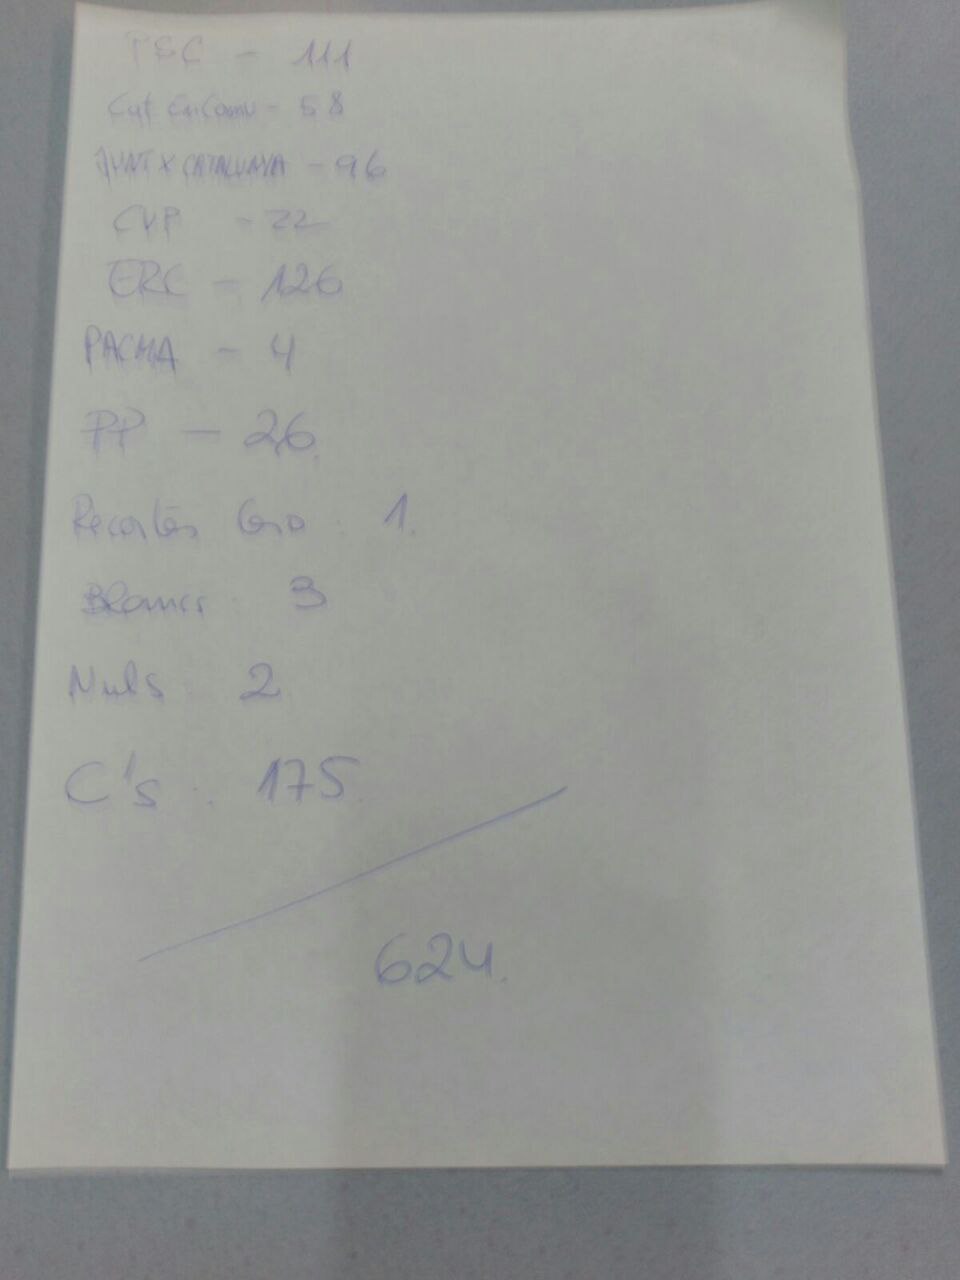 PSC - 111
Cat EnComú - 58
JUNTXCATALUNYA - 96
CUP - 22
ERC - 126
PACMA - 4
PP - 26.
Recortes Cero : 1.
Blancs : 3
Nuls : 2
C's : 175.
624.